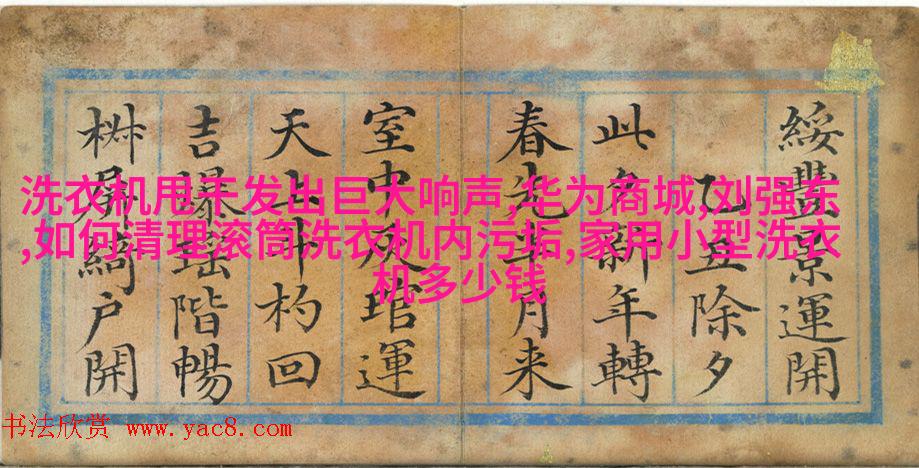 綏豐景運開
乙丑除夕
此夕新年轉
春先月来
室中灰琯運
天上斗杓回
吉爆瑶階暢
椒屏綺户開
洗衣机甩干发出巨大响声,华为商城,刘强东
,如何清理滚筒洗衣机内污垢,家用小型洗衣
机多少钱
书法欣赏 www.yac8.com